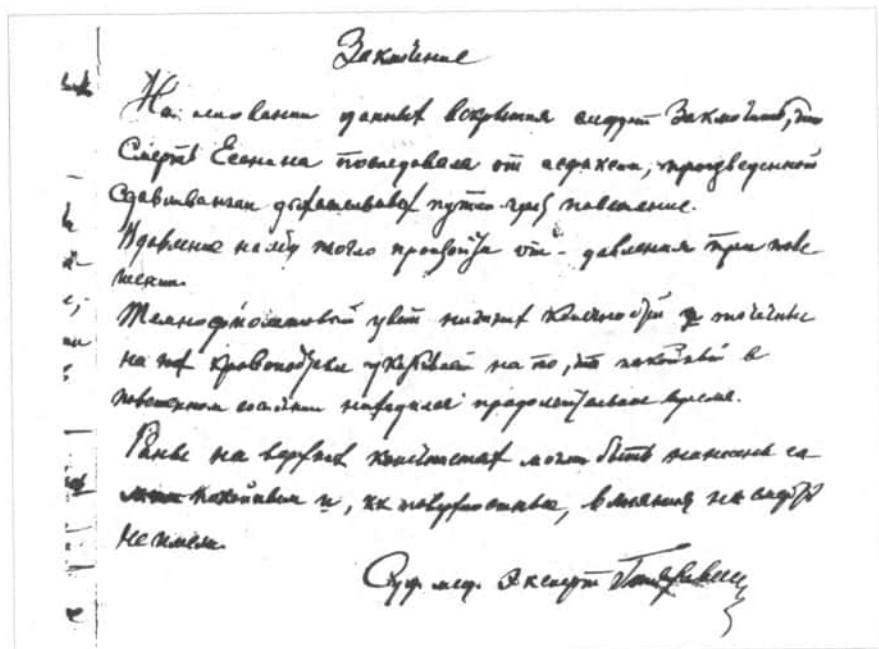 Заключение
На основании данных вскрытия следует заключить, что
смерть Есенина последовала от асфиксии, произведенной
сдавливанием дыхательных путей через повешение.
Вдавление на лбу могло произойти от давления при пове
шении.
Темнофиолетовый цвет нижних конечностей, точечные
на них кровоподтеки указывают на то, что покойный в
повешенном состоянии находился продолжительное время.
Раны на верхних конечностях могли быть нанесены са
мим покойным и, как поверхностные, влияния на смерть
не имели.
Суд. мед. Эксперт Гиляревский